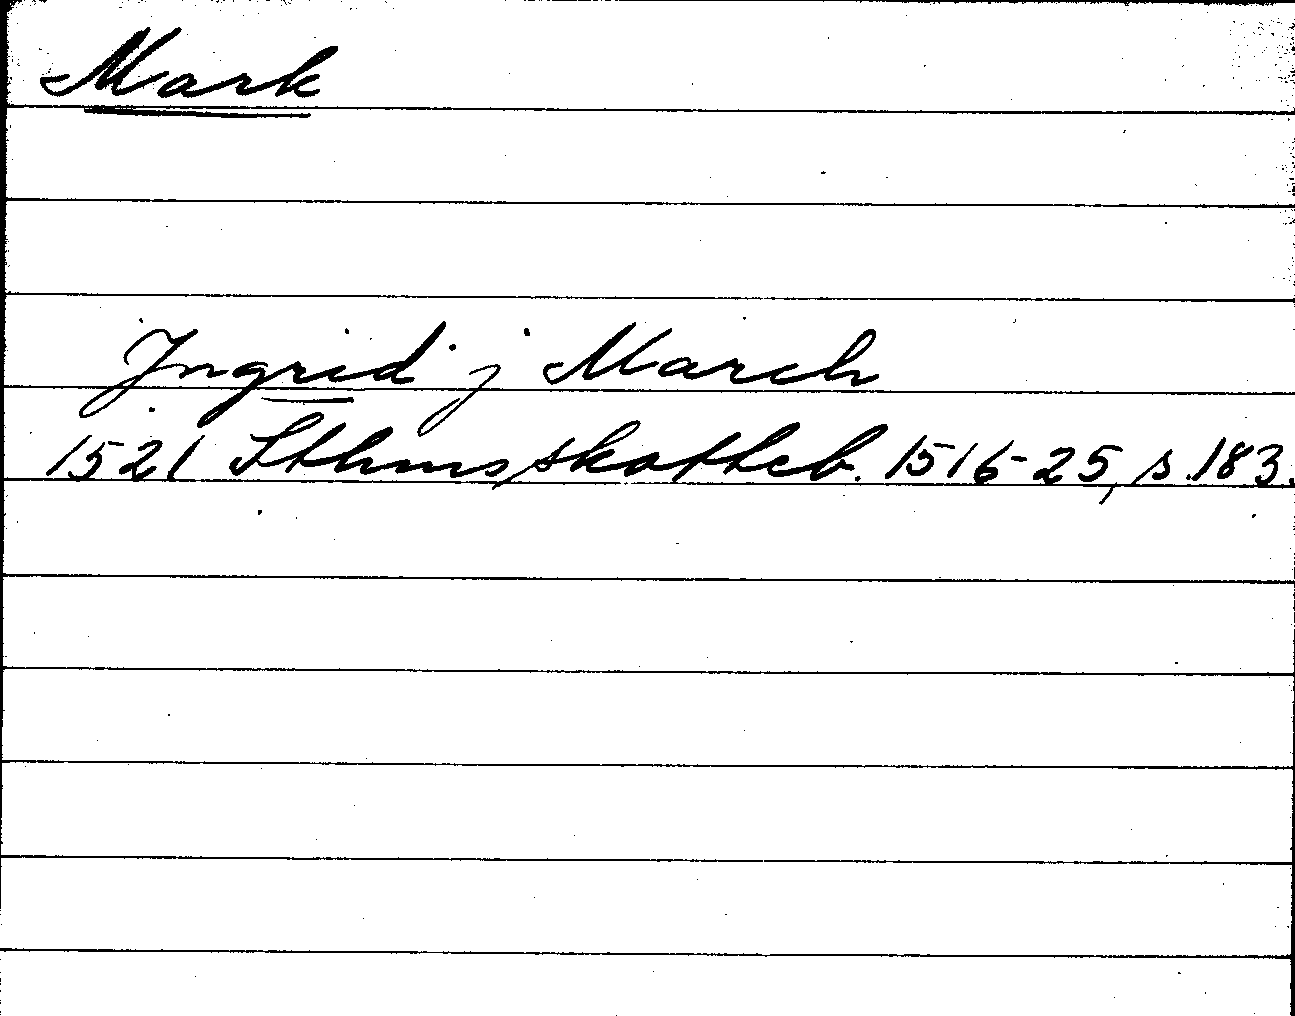 Mark
Jngrid j March
1521 Sthms skatteb. 1516-25, s. 183.